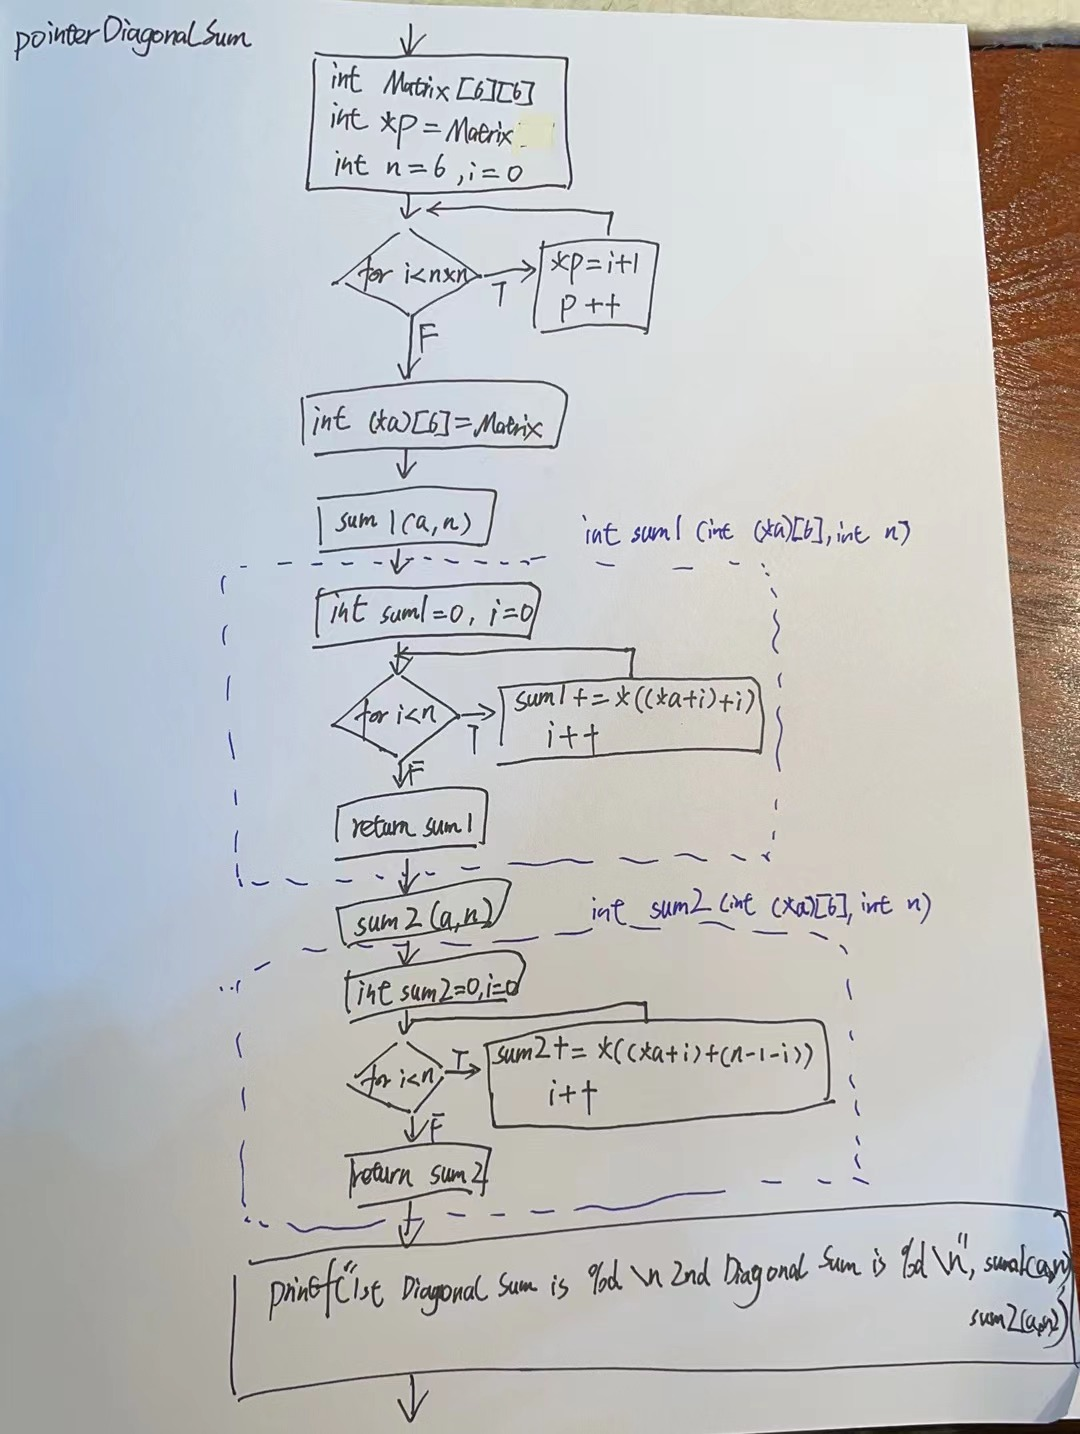 pointerDiagonalSum
int Matrix [6][6]
int *p = Matrix
int n = 6 , i = 0
for i<n*n
T
*p = i+1
p ++
F
int (*a)[6] = Matrix
sum1(a,n)
int sum1 (int (*a)[6], int n)
int sum1=0, i=0
for i<n
T
sum1 += *((*a+i)+i)
i++
F
return sum1
sum2(a,n)
int sum2 (int (*a)[6], int n)
int sum2=0,i=0
for i<n
T
sum2 += *((*a+i)+(n-1-i))
i++
F
return sum2
printf("1st Diagonal Sum is %d \n 2nd Diagonal Sum is %d \n", sum1(a,n)
sum2(a,n))